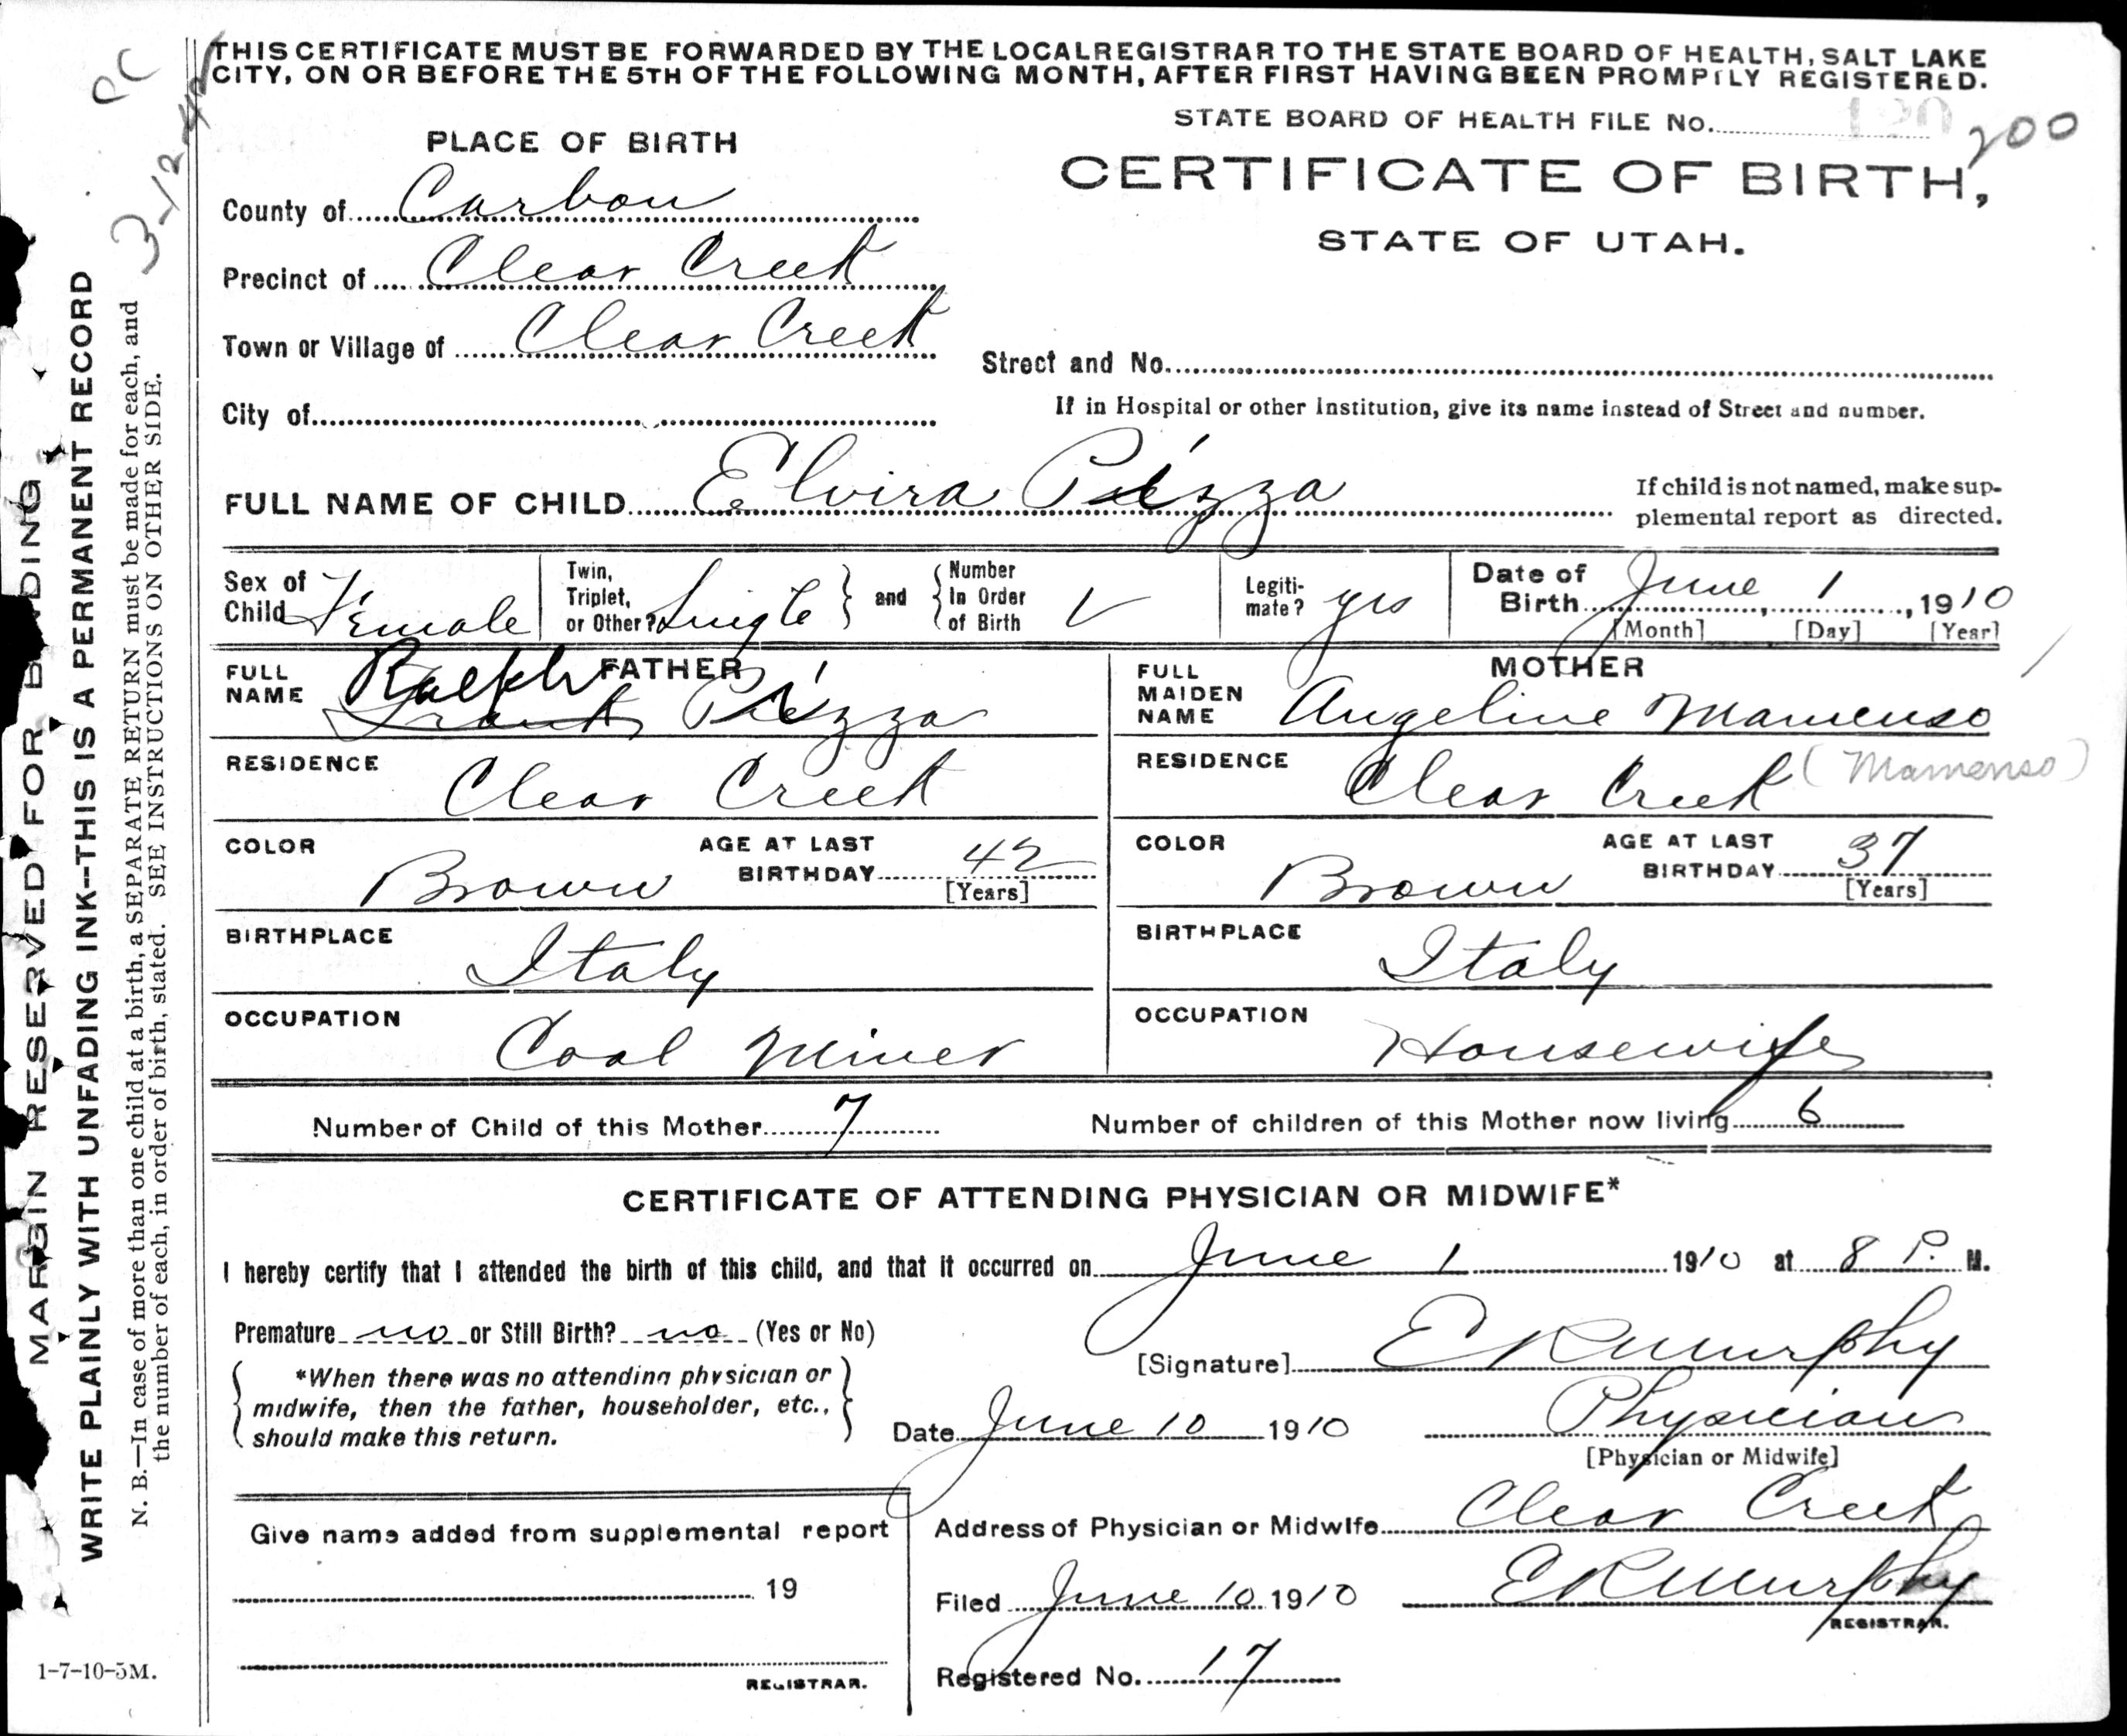 THIS CERTIFICATE MUST BE FORWARDED BY THE LOCAL REGISTRAR TO THE STATE BOARD OF HEALTH, SALT LAKE
CITY, ON OR BEFORE THE 5TH OF THE FOLLOWING MONTH, AFTER FIRST HAVING BEEN PROMPTLY REGISTERED.
PC
3-12-42
STATE BOARD OF HEALTH FILE No. 120 200
PLACE OF BIRTH
CERTIFICATE OF BIRTH,
STATE OF UTAH.
County of Carbon
Precinct of Clear Creek
Town or Village of Clear Creek
Street and No.
City of
If in Hospital or other Institution, give its name instead of Street and number.
FULL NAME OF CHILD Elvira Pizza
If child is not named, make sup-
plemental report as directed.
Sex of Child Female
Twin, Triplet, or Other? Single and Number In Order of Birth
Legiti-mate? yes
Date of Birth June 1, 1910
[Month] [Day] [Year]
FATHER
FULL NAME Ralph Frank Pizza
RESIDENCE Clear Creek
COLOR Brown AGE AT LAST BIRTHDAY 42 [Years]
BIRTHPLACE Italy
OCCUPATION Coal Miner
MOTHER
FULL MAIDEN NAME Angeline Mamenso
RESIDENCE Clear Creek (Mamenso)
COLOR Brown AGE AT LAST BIRTHDAY 37 [Years]
BIRTHPLACE Italy
OCCUPATION Housewife
Number of Child of this Mother 7 Number of children of this Mother now living 6
CERTIFICATE OF ATTENDING PHYSICIAN OR MIDWIFE*
I hereby certify that I attended the birth of this child, and that it occurred on June 1 1910 at 8 P. M.
Premature no or Still Birth? no (Yes or No)
[Signature] E R Murphy
*When there was no attending physician or
midwife, then the father, householder, etc.,
should make this return.
Date June 10 1910 Physician
[Physician or Midwife]
Give name added from supplemental report
19
REGISTRAR.
Address of Physician or Midwife Clear Creek
Filed June 10 1910 E R Murphy
REGISTRAR.
Registered No. 17
MARGIN RESERVED FOR BINDING
WRITE PLAINLY WITH UNFADING INK--THIS IS A PERMANENT RECORD
N. B.—In case of more than one child at a birth, a SEPARATE RETURN must be made for each, and
the number of each, in order of birth, stated. SEE INSTRUCTIONS ON OTHER SIDE.
1-7-10-5M.